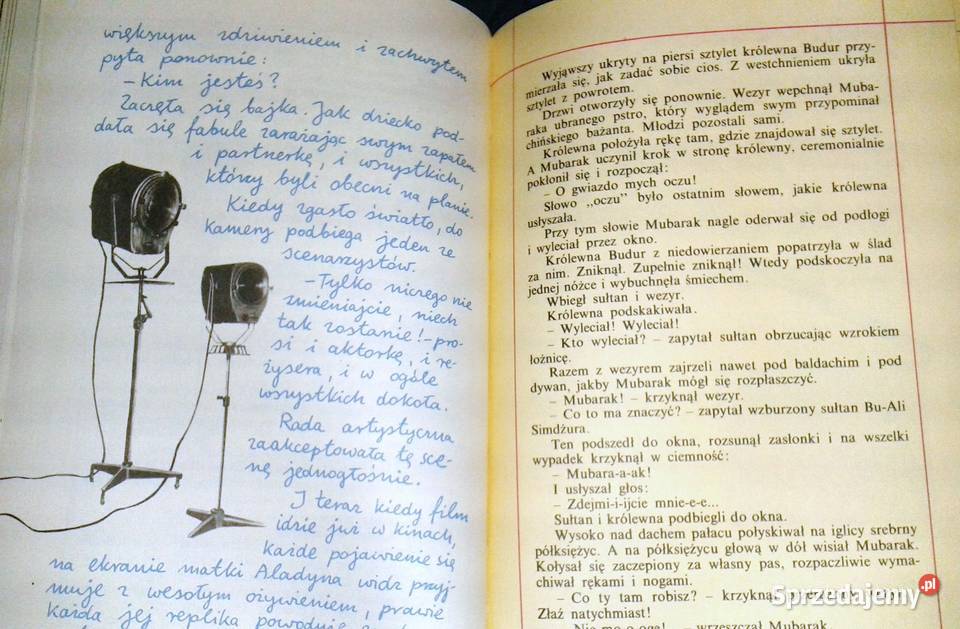 większym zdziwieniem i zachwytem
pyta ponownie:
– Kim jesteś?
Zaczęła się bajka. Jak dziecko pod-
dała się fabule zarażając swym zapałem
i partnerkę, i wszystkich,
którzy byli obecni na planie.
Kiedy zgasło światło, do
kamery podbiega jeden ze
scenarzystów.
– Tylko niczego nie
zmieniajcie, niech
tak zostanie! – pro-
si i aktorkę, i re-
żysera, i w ogóle
wszystkich dokoła.
Rada artystyczna
zaakceptowała tę sce-
nę jednogłośnie.
I teraz kiedy film
idzie już w kinach,
każde pojawienie się
na ekranie matki Aladyna widz przyj-
muje z wesołym ożywieniem, prawie
każda jej replika powoduje
Wyjąwszy ukryty na piersi sztylet królewna Budur przy-
mierzała się, jak zadać sobie cios. Z westchnieniem ukryła
sztylet z powrotem.
Drzwi otworzyły się ponownie. Wezyr wepchnął Muba-
raka ubranego pstro, który wyglądem swym przypominał
chińskiego bażanta. Młodzi pozostali sami.
Królewna położyła rękę tam, gdzie znajdował się sztylet.
A Mubarak uczynił krok w stronę królewny, ceremonialnie
pokłonił się i rozpoczął:
– O gwiazdo mych oczu!
Słowo „oczu” było ostatnim słowem, jakie królewna
usłyszała.
Przy tym słowie Mubarak nagle oderwał się od podłogi
i wyleciał przez okno.
Królewna Budur z niedowierzaniem popatrzyła w ślad
za nim. Zniknął. Zupełnie zniknął! Wtedy podskoczyła na
jednej nóżce i wybuchnęła śmiechem.
Wbiegł sułtan i wezyr.
Królewna podskakiwała.
– Wyleciał! Wyleciał!
– Kto wyleciał? – zapytał sułtan obrzucając wzrokiem
łożnicę.
Razem z wezyrem zajrzeli nawet pod baldachim i pod
dywan, jakby Mubarak mógł się rozpłaszczyć.
– Mubarak! – krzyknął wezyr.
– Co to ma znaczyć? – zapytał wzburzony sułtan Bu-Ali
Simdżura.
Ten podszedł do okna, rozsunął zasłonki i na wszelki
wypadek krzyknął w ciemność:
– Mubara-a-ak!
I usłyszał głos:
– Zdejmi-i-ijcie mnie-e-e...
Sułtan i królewna podbiegli do okna.
Wysoko nad dachem pałacu połyskiwał na iglicy srebrny
półksiężyc. A na półksiężycu głową w dół wisiał Mubarak.
Kołysał się zaczepiony za własny pas, rozpaczliwie wyma-
chiwał rękami i nogami.
– Co ty tam robisz? – krzyknął
Złaź natychmiast!
wrzeszczał Mubarak.
Sprzedajemy.pl